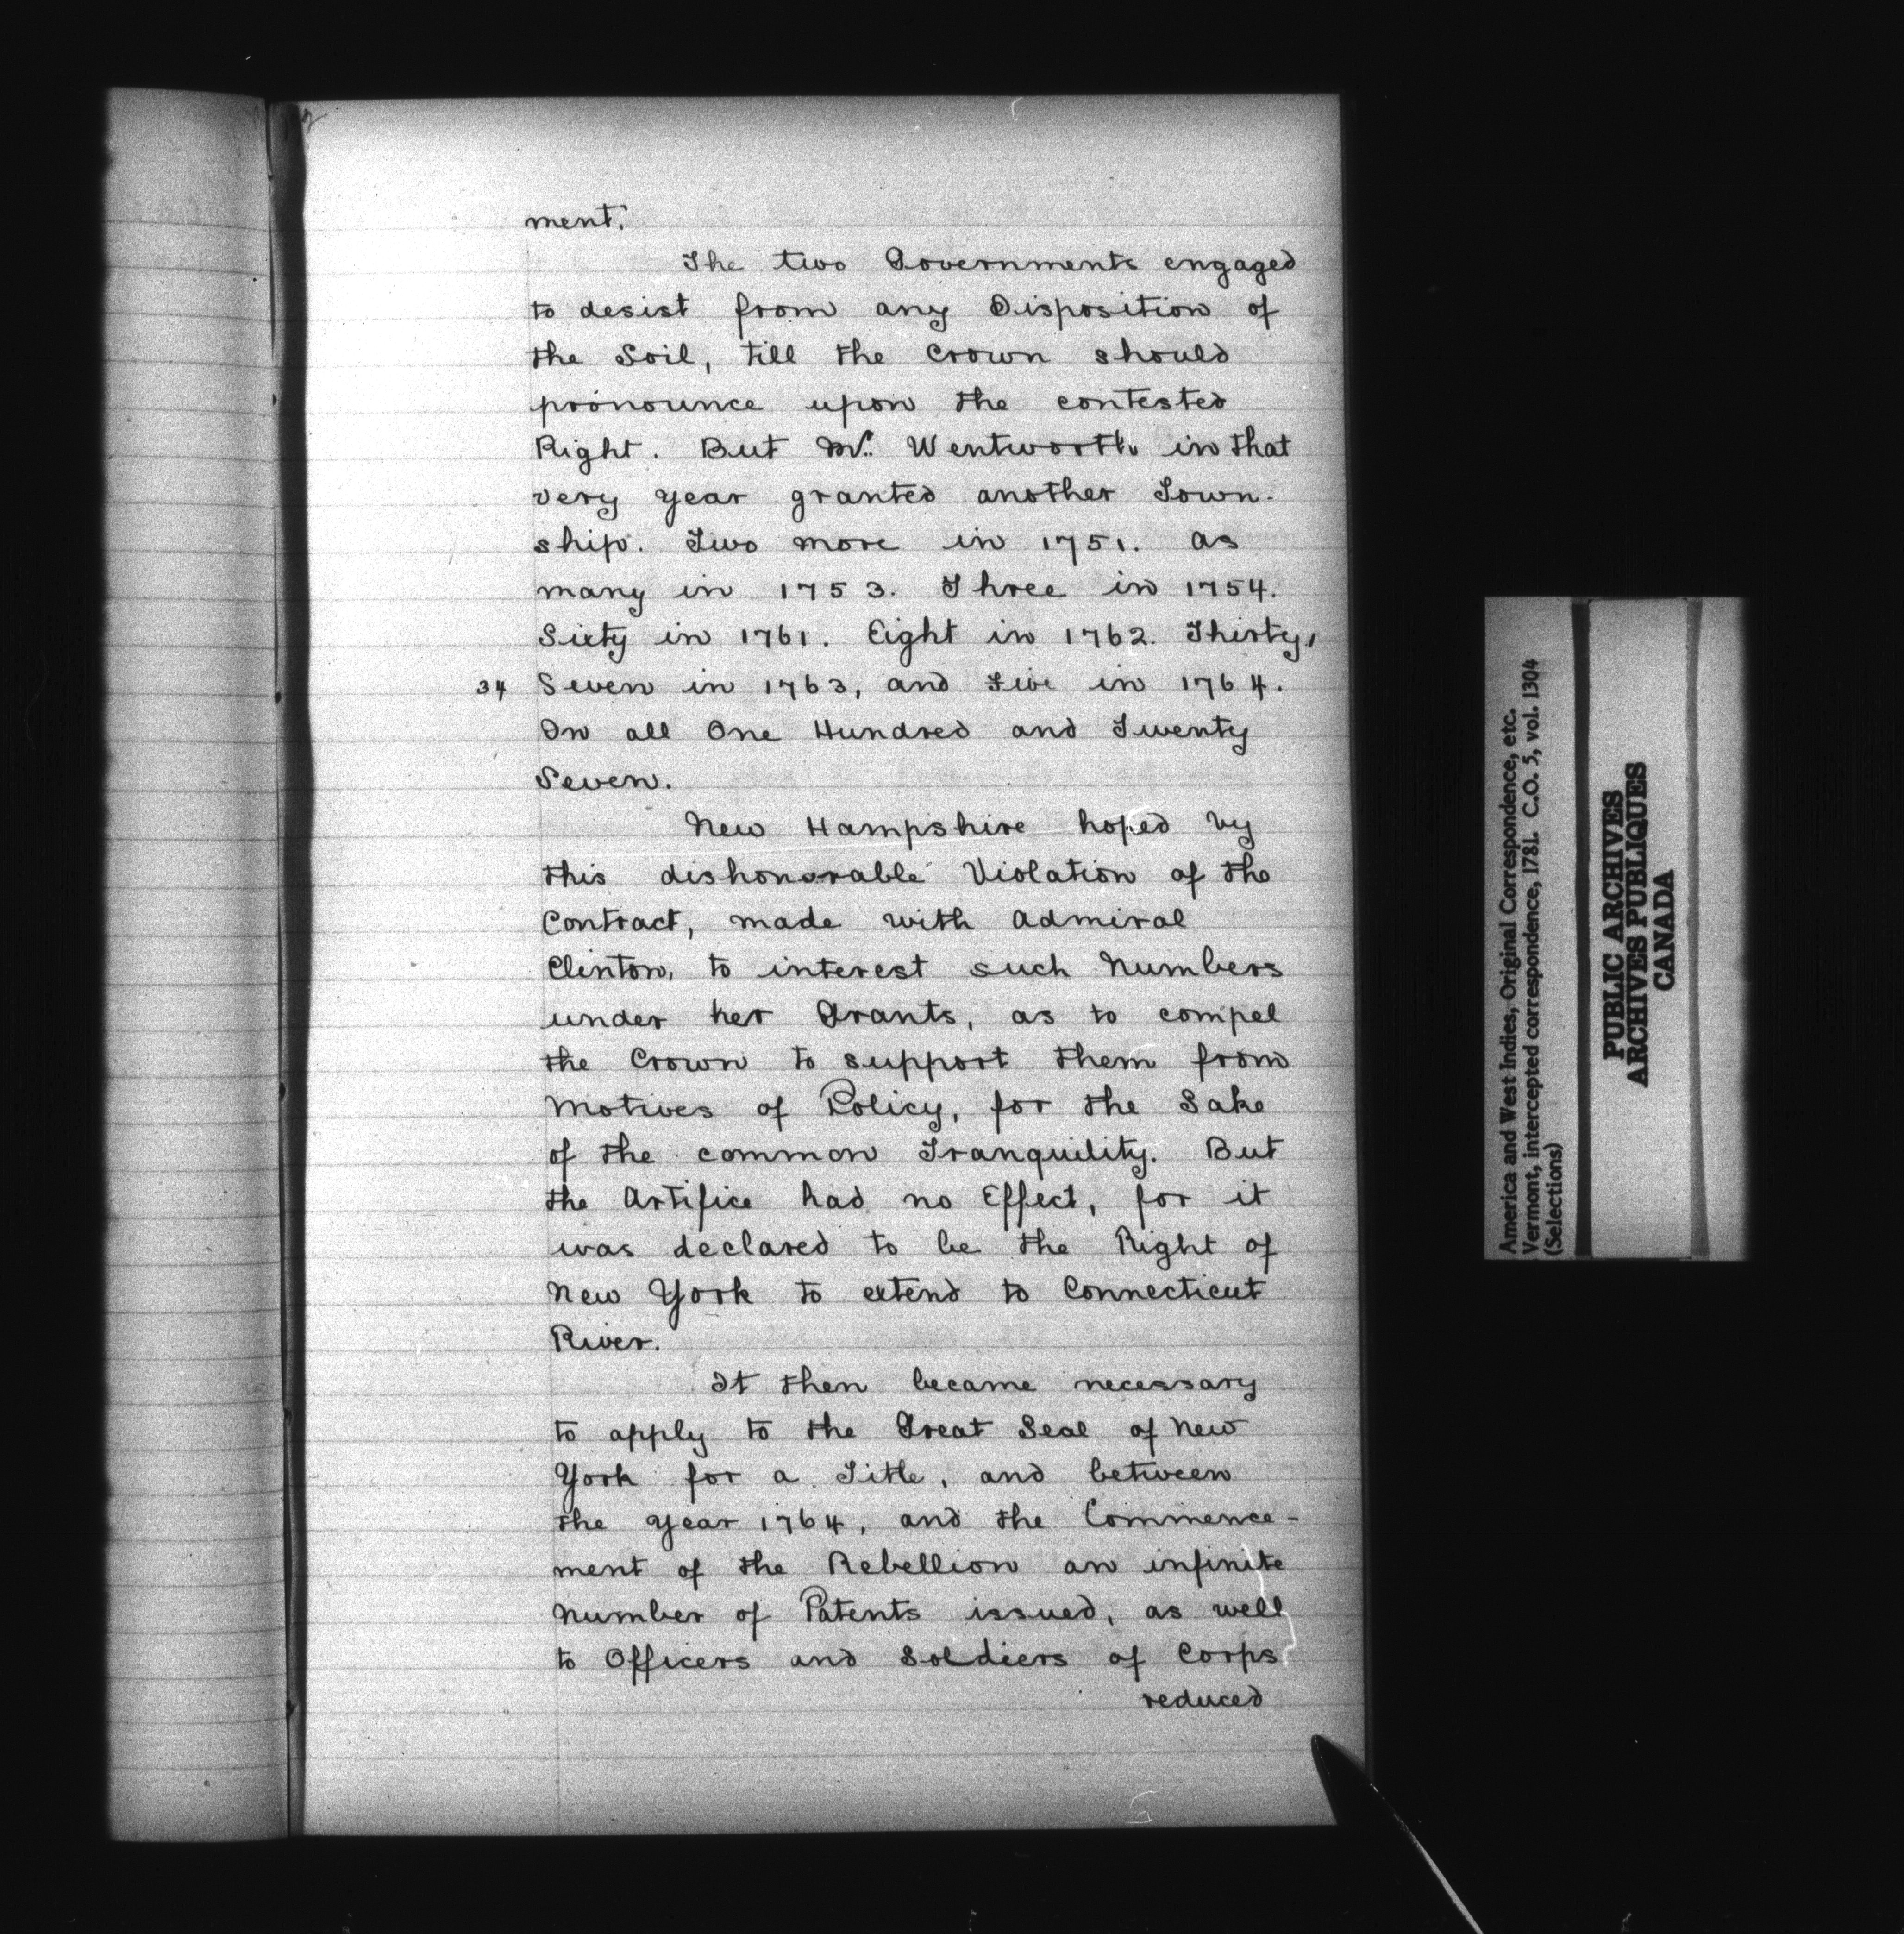 ment.
The two Governments engaged
to desist from any Disposition of
the Soil, till the Crown should
pronounce upon the contested
Right. But Mr. Wentworth in that
very year granted another Town-
ship. Two more in 1751. as
many in 1753. Three in 1754.
Sixty in 1761. Eight in 1762. Thirty,
34 Seven in 1763, and Five in 1764.
In all One Hundred and Twenty
Seven.
New Hampshire hoped by
this dishonorable Violation of the
Contract, made with Admiral
Clinton, to interest such Numbers
under her Grants, as to compel
the Crown to support them from
Motives of Policy, for the Sake
of the common Tranquility. But
the Artifice had no Effect, for it
was declared to be the Right of
New York to extend to Connecticut
River.
It then became necessary
to apply to the Great Seal of New
York for a Title, and between
the year 1764, and the Commence-
ment of the Rebellion an infinite
Number of Patents issued, as well
to Officers and Soldiers of Corps
reduced
America and West Indies, Original Correspondence, etc.
Vermont, intercepted correspondence, 1781. C.O. 5, vol. 1304
(Selections)
PUBLIC ARCHIVES
ARCHIVES PUBLIQUES
CANADA